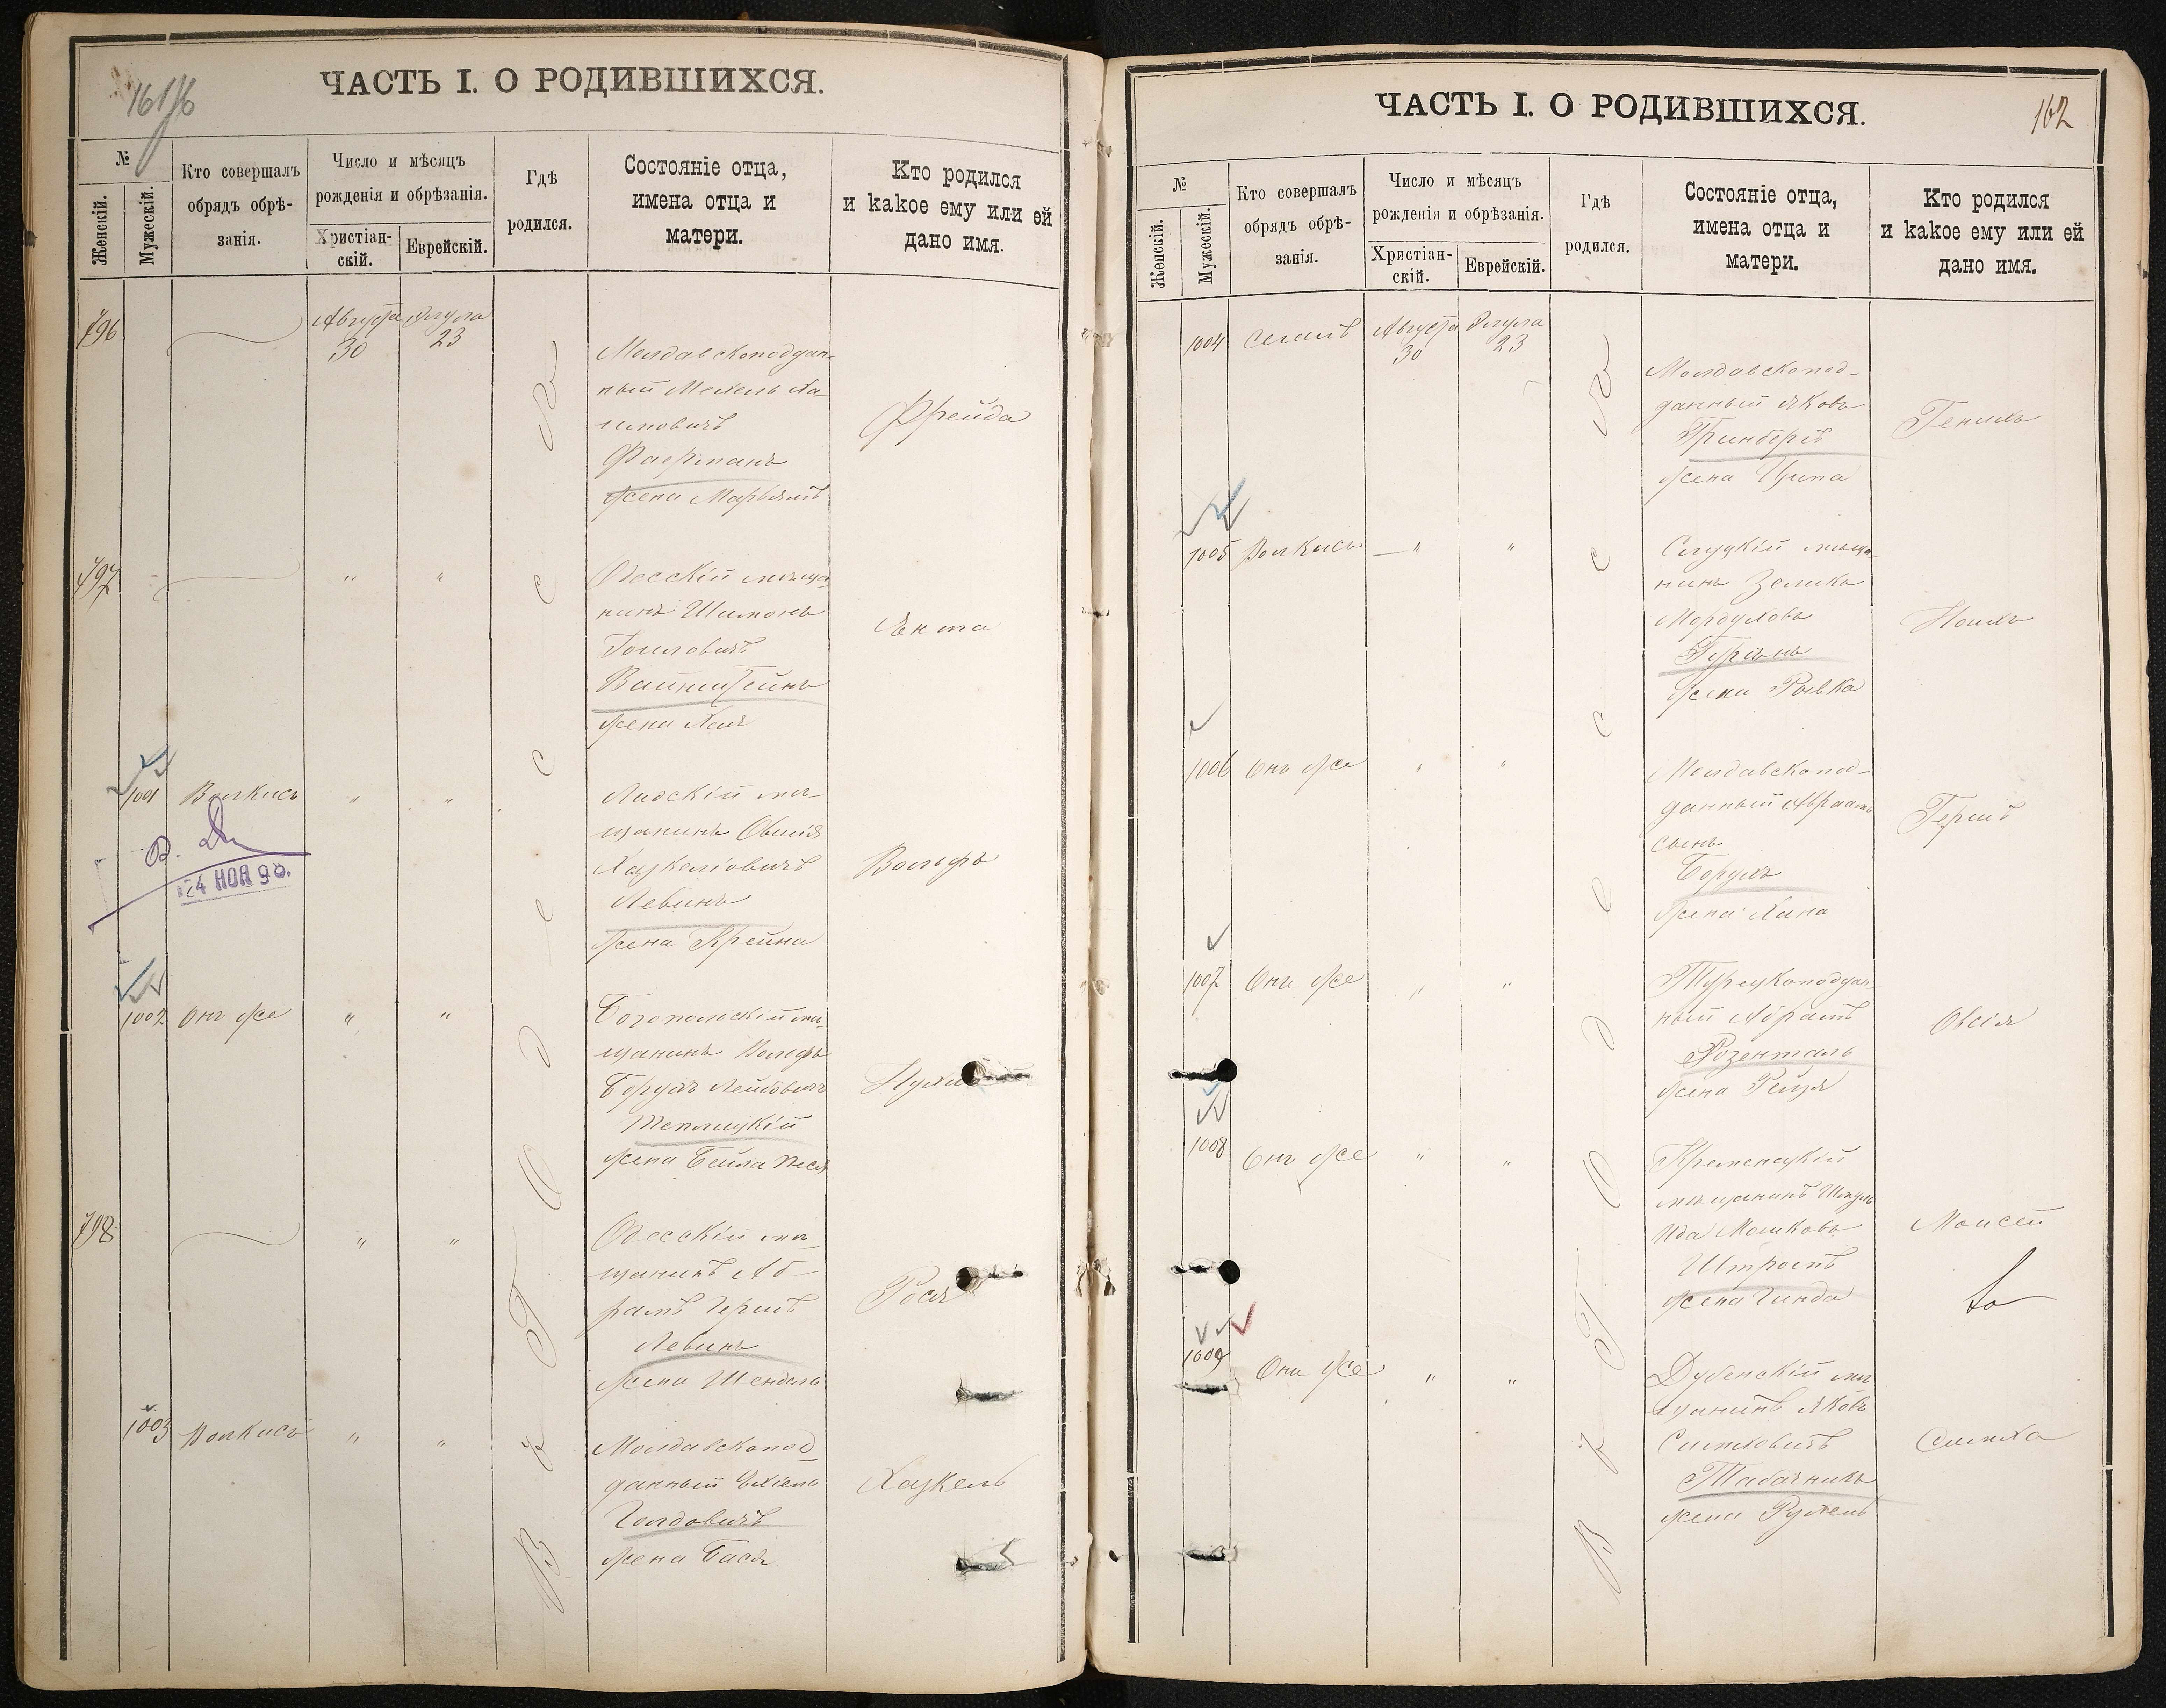 161/б
ЧАСТЬ I. О РОДИВШИХСЯ.
№
Женскій.
Мужескій.
Кто совершалъ
обрядъ обрѣ-
занія.
Число и мѣсяцъ
рожденія и обрѣзанія.
Христіан-
скій.
Еврейскій.
Гдѣ
родился.
Состояніе отца,
имена отца и
матери.
Кто родился
и какое ему или ей
дано имя.
796
Августа
30
Элула
23
Молдавскоподдан-
ный Мехель Ха
имовичъ
Фаерманъ
жена Марьямъ
Фрейда
797
"
"
Одесскій мѣща
нинъ Шимонъ
Вайнштейнъ
жена Хая
Ента
1001
Волкисъ
"
"
Лидскій мѣ-
щанинъ Овшія
Хацкеліовичъ
Левинъ
жена Крейна
Вольфъ
24 НОЯ 98.
1002
Онъ же
"
"
Богопольскій мѣ-
щанинъ Вольфъ
Борухъ Лейбовичъ
Теплицкій
жена Бейла Песя
798
"
"
Одесскій мѣ-
щанинъ Аб-
рамъ Гершъ
Левинъ
жена Шендель
Рося
1003
Волкисъ
"
"
Молдавскопод-
данный Ехіель
Голдовичъ
жена Бася
Хацкель
Въ г. Одессѣ
162
ЧАСТЬ I. О РОДИВШИХСЯ.
№
Женскій.
Мужескій.
Кто совершалъ
обрядъ обрѣ-
занія.
Число и мѣсяцъ
рожденія и обрѣзанія.
Христіан-
скій.
Еврейскій.
Гдѣ
родился.
Состояніе отца,
имена отца и
матери.
Кто родился
и какое ему или ей
дано имя.
1004
Сегалъ
Августа
30
Элула
23
Молдавскопод-
данный Яковъ
Гринбергъ
жена Ципа
Генихъ
1005
Волкисъ
"
"
Слуцкій мѣща-
нинъ Зеликъ
Мордуховъ
жена Рывка
1006
Онъ же
"
"
Молдавскопод-
данный Авраамъ
сынъ
Борухъ
жена Хана
Гершъ
1007
Онъ же
"
"
Турецкоподдан-
ный Абрамъ
Розенталь
жена Рейзя
Овсія
1008
Онъ же
"
"
Кременецкій
мѣщанинъ Шмуль
Ида Мошковъ
Штромъ
жена Гинда
Моисей
1009
Онъ же
"
"
Дубенскій мѣ
щанинъ Яковъ
Симховичъ
Табачникъ
жена Рухель
Симха
Въ г. Одессѣ